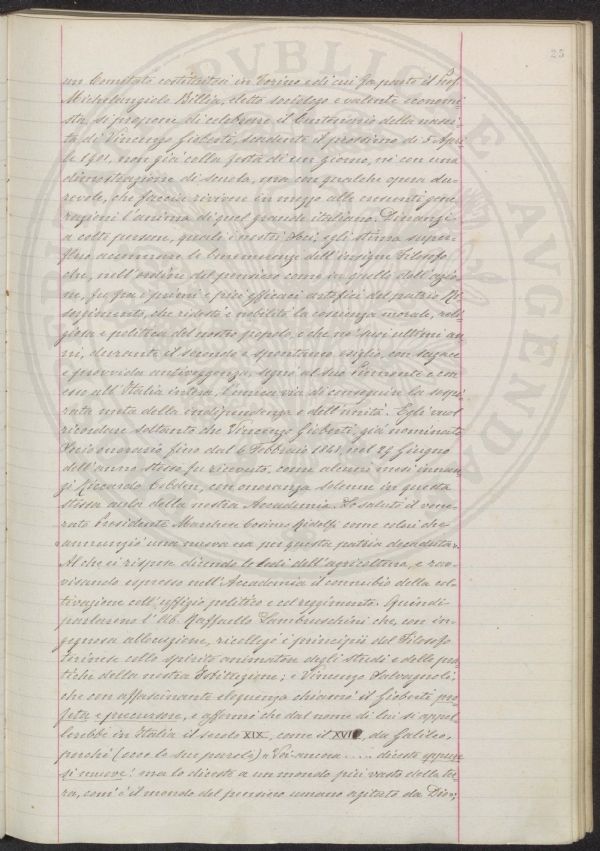 25
un Comitato costituitosi in Torino e di cui fa parte il Prof.
Michelangelo Billia, eletto sociologo e valente economi=
sta, si propone di celebrare il Centenario della nasci=
ta di Vincenzo Gioberti, scadente il prossimo dì 5 Apri=
le 1901, non già colla festa di un giorno, nè con una
dimostrazione di scuola, ma con qualche opera du=
revole, che faccia rivivere in mezzo alle crescenti gene=
razioni l'anima di quel grande italiano. Dinanzi
a colte persone, quali i nostri Soci, egli stima super=
fluo accennare le benemerenze dell'insigne Filosofo
che, nell'ordine del pensiero come in quello dell'azio=
ne, fu fra i primi e più efficaci artefici del patrio Ri=
sorgimento, che ridestò e nobilitò la coscienza morale, reli=
giosa e politica del nostro popolo, e che ne' suoi ultimi an=
ni, durante il secondo e spontaneo esiglio, con sagace
e provvida antiveggenza, segnò al suo Piemonte e con
esso all'Italia intera, l'unica via di conseguire la sospi=
rata meta della indipendenza e dell'unità. Egli vuol
ricordare soltanto che Vincenzo Gioberti, già nominato
Socio onorario fino dal 6 Febbraio 1848, nel 29 Giugno
dell'anno stesso fu ricevuto, come alcuni mesi innan=
zi Riccardo Cobden, con onoranza solenne in questa
stessa aula della nostra Accademia. Lo salutò il vene=
rato Presidente Marchese Cosimo Ridolfi come colui che
"annunziò una nuova era per questa patria decaduta".
Al che ei rispose dicendo le lodi dell'agricoltura, e rav=
visando espresso nell'Accademia il connubio della col=
tivazione coll'uffizio politico e col reggimento. Quindi
parlarono l'Ab. Raffaello Lambruschini che con in=
gegnosa allocuzione, ricollegò i principii del Filosofo
torinese collo spirito animatore degli studi e delle pra=
tiche della nostra Istituzione; e Vincenzo Salvagnoli,
che con affascinante eloquenza chiamò il Gioberti pro=
feta e precursore, e affermò che dal nome di lui si appel=
lerebbe in Italia il secolo XIX, come il XVII, da Galileo,
perchè (ecco le sue parole) "Voi ancora ..... diceste eppur
si muove! ma lo diceste a un mondo più vasto della ter=
ra, com'è il mondo del pensiero umano agitato da Dio";